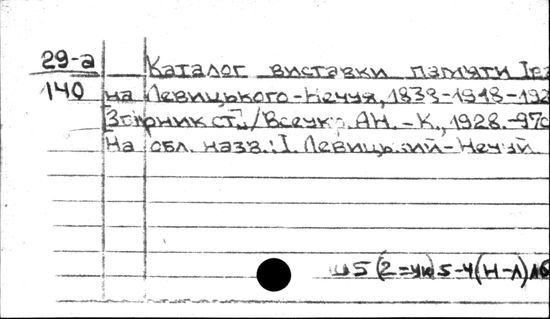 29-а Каталог виставки пам'яти Iва
140 на Левицького-Нечуя, 1838-1918-192
[Збірник ст.] / Всеукр. АН. - К., 1928. - 97с
На обл. назв.: І. Левицький-Нечуй.
Ш5(2=Ук)5-4(Н-Л)Лб